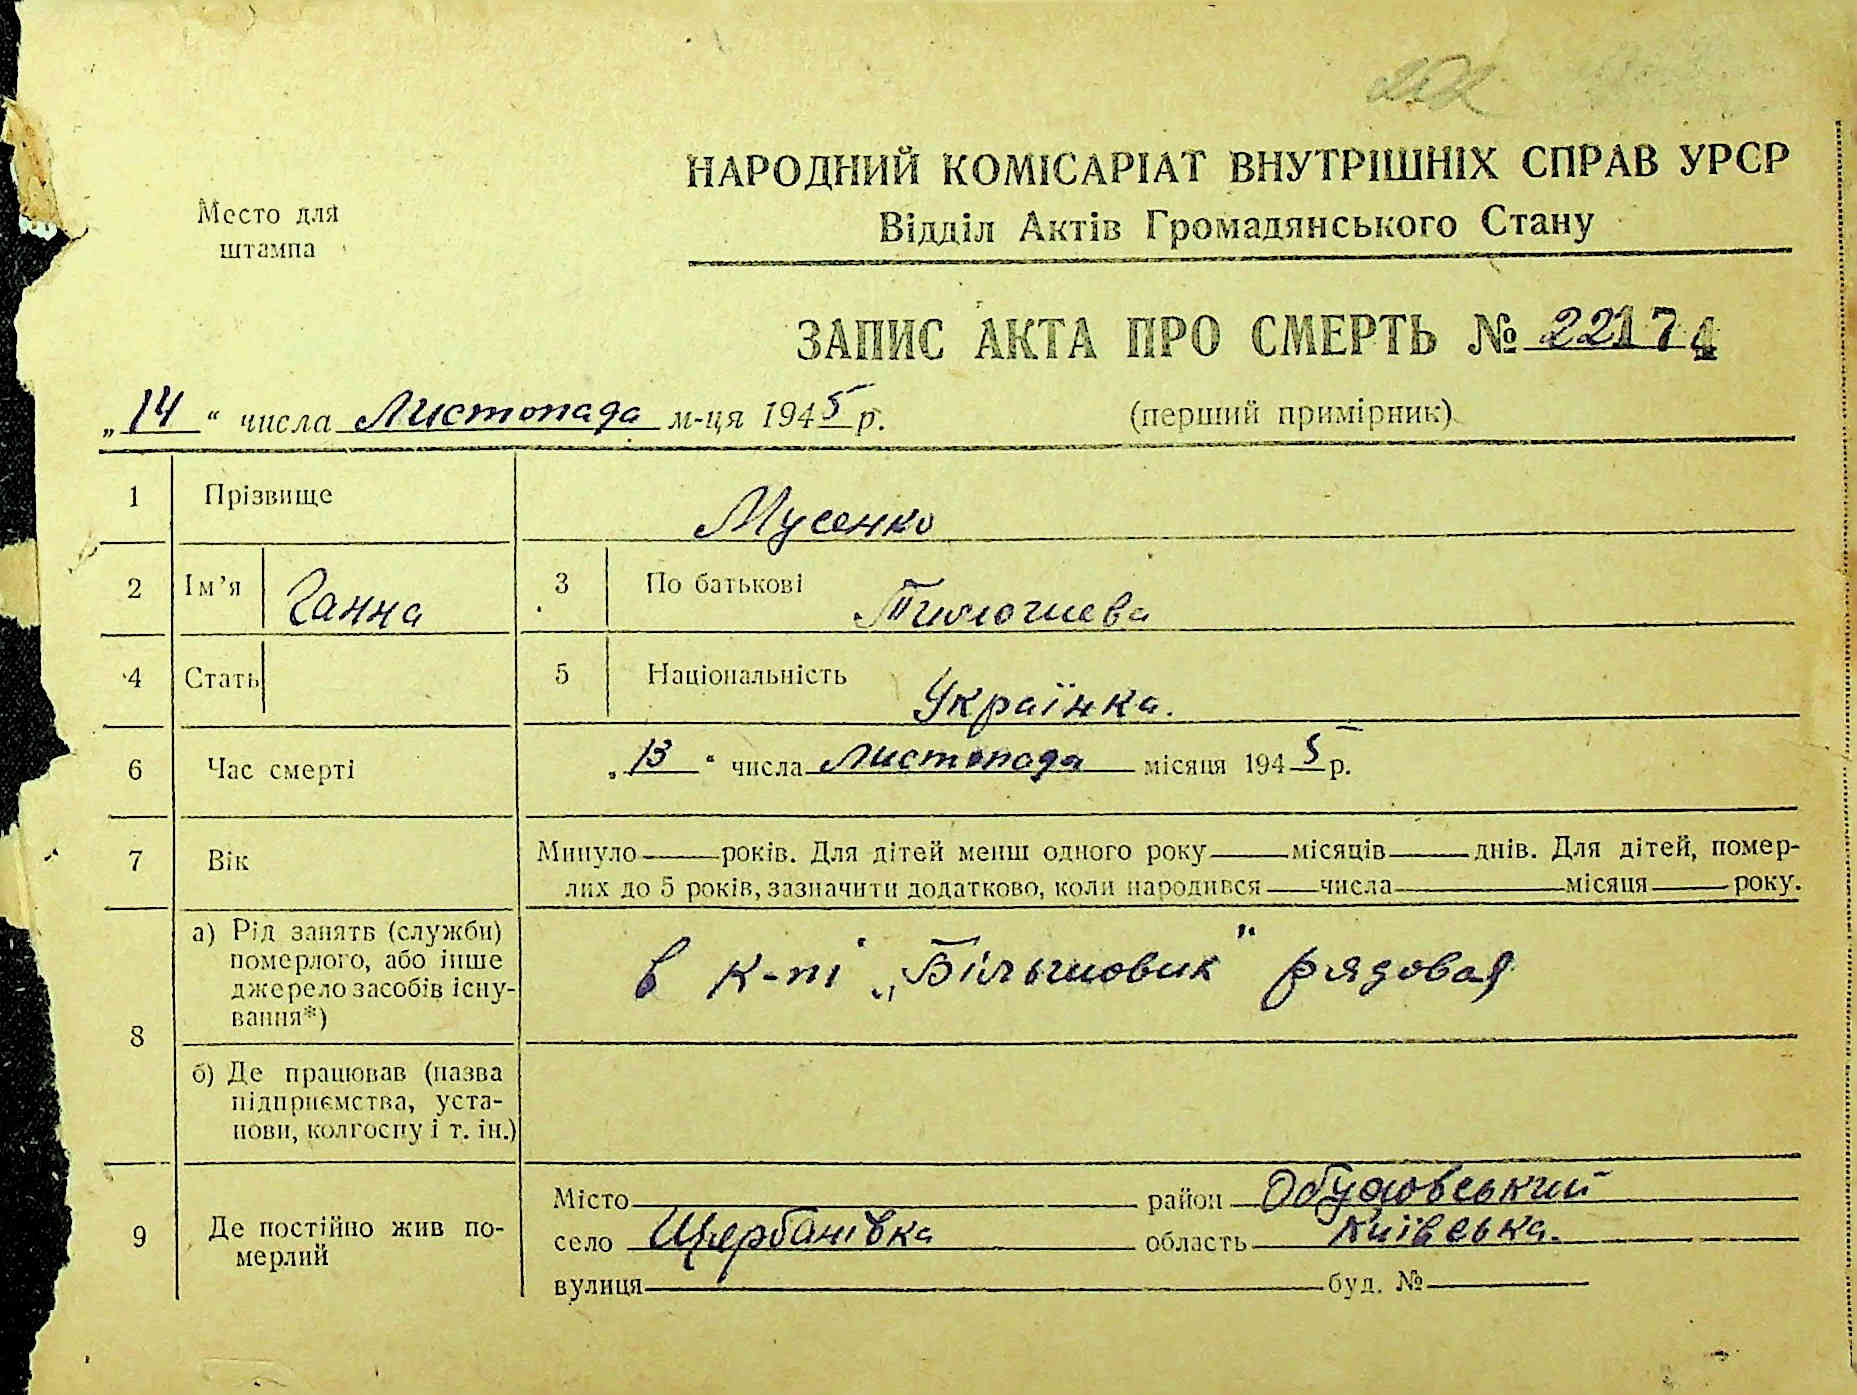 НАРОДНИЙ КОМІСАРІАТ ВНУТРІШНІХ СПРАВ УРСР
Место для штампа
Відділ Актів Громадянського Стану
ЗАПИС АКТА ПРО СМЕРТЬ № 22174
„14“ числа Листопада м-ця 1945 р. (перший примірник)
1 Прізвище Мусенко
2 Ім’я Ганна 3 По батькові
4 Стать 5 Національність Українка.
6 Час смерті „13“ числа листопада місяця 1945 р.
7 Вік Минуло ___ років. Для дітей менш одного року ___ місяців ___ днів. Для дітей, помер-
лих до 5 років, зазначити додатково, коли народився ___ числа ___ місяця ___ року.
8 а) Рід занять (служби)
померлого, або інше
джерело засобів існу-
вання*)
в к-пі „Більшовик" рядовая
б) Де працював (назва
підприємства, уста-
нови, колгоспу і т. ін.)
9 Де постійно жив по-
мерлий
Місто ___ район Обуховський
село Щербанівка область Київська.
вулиця ___ буд. № ___